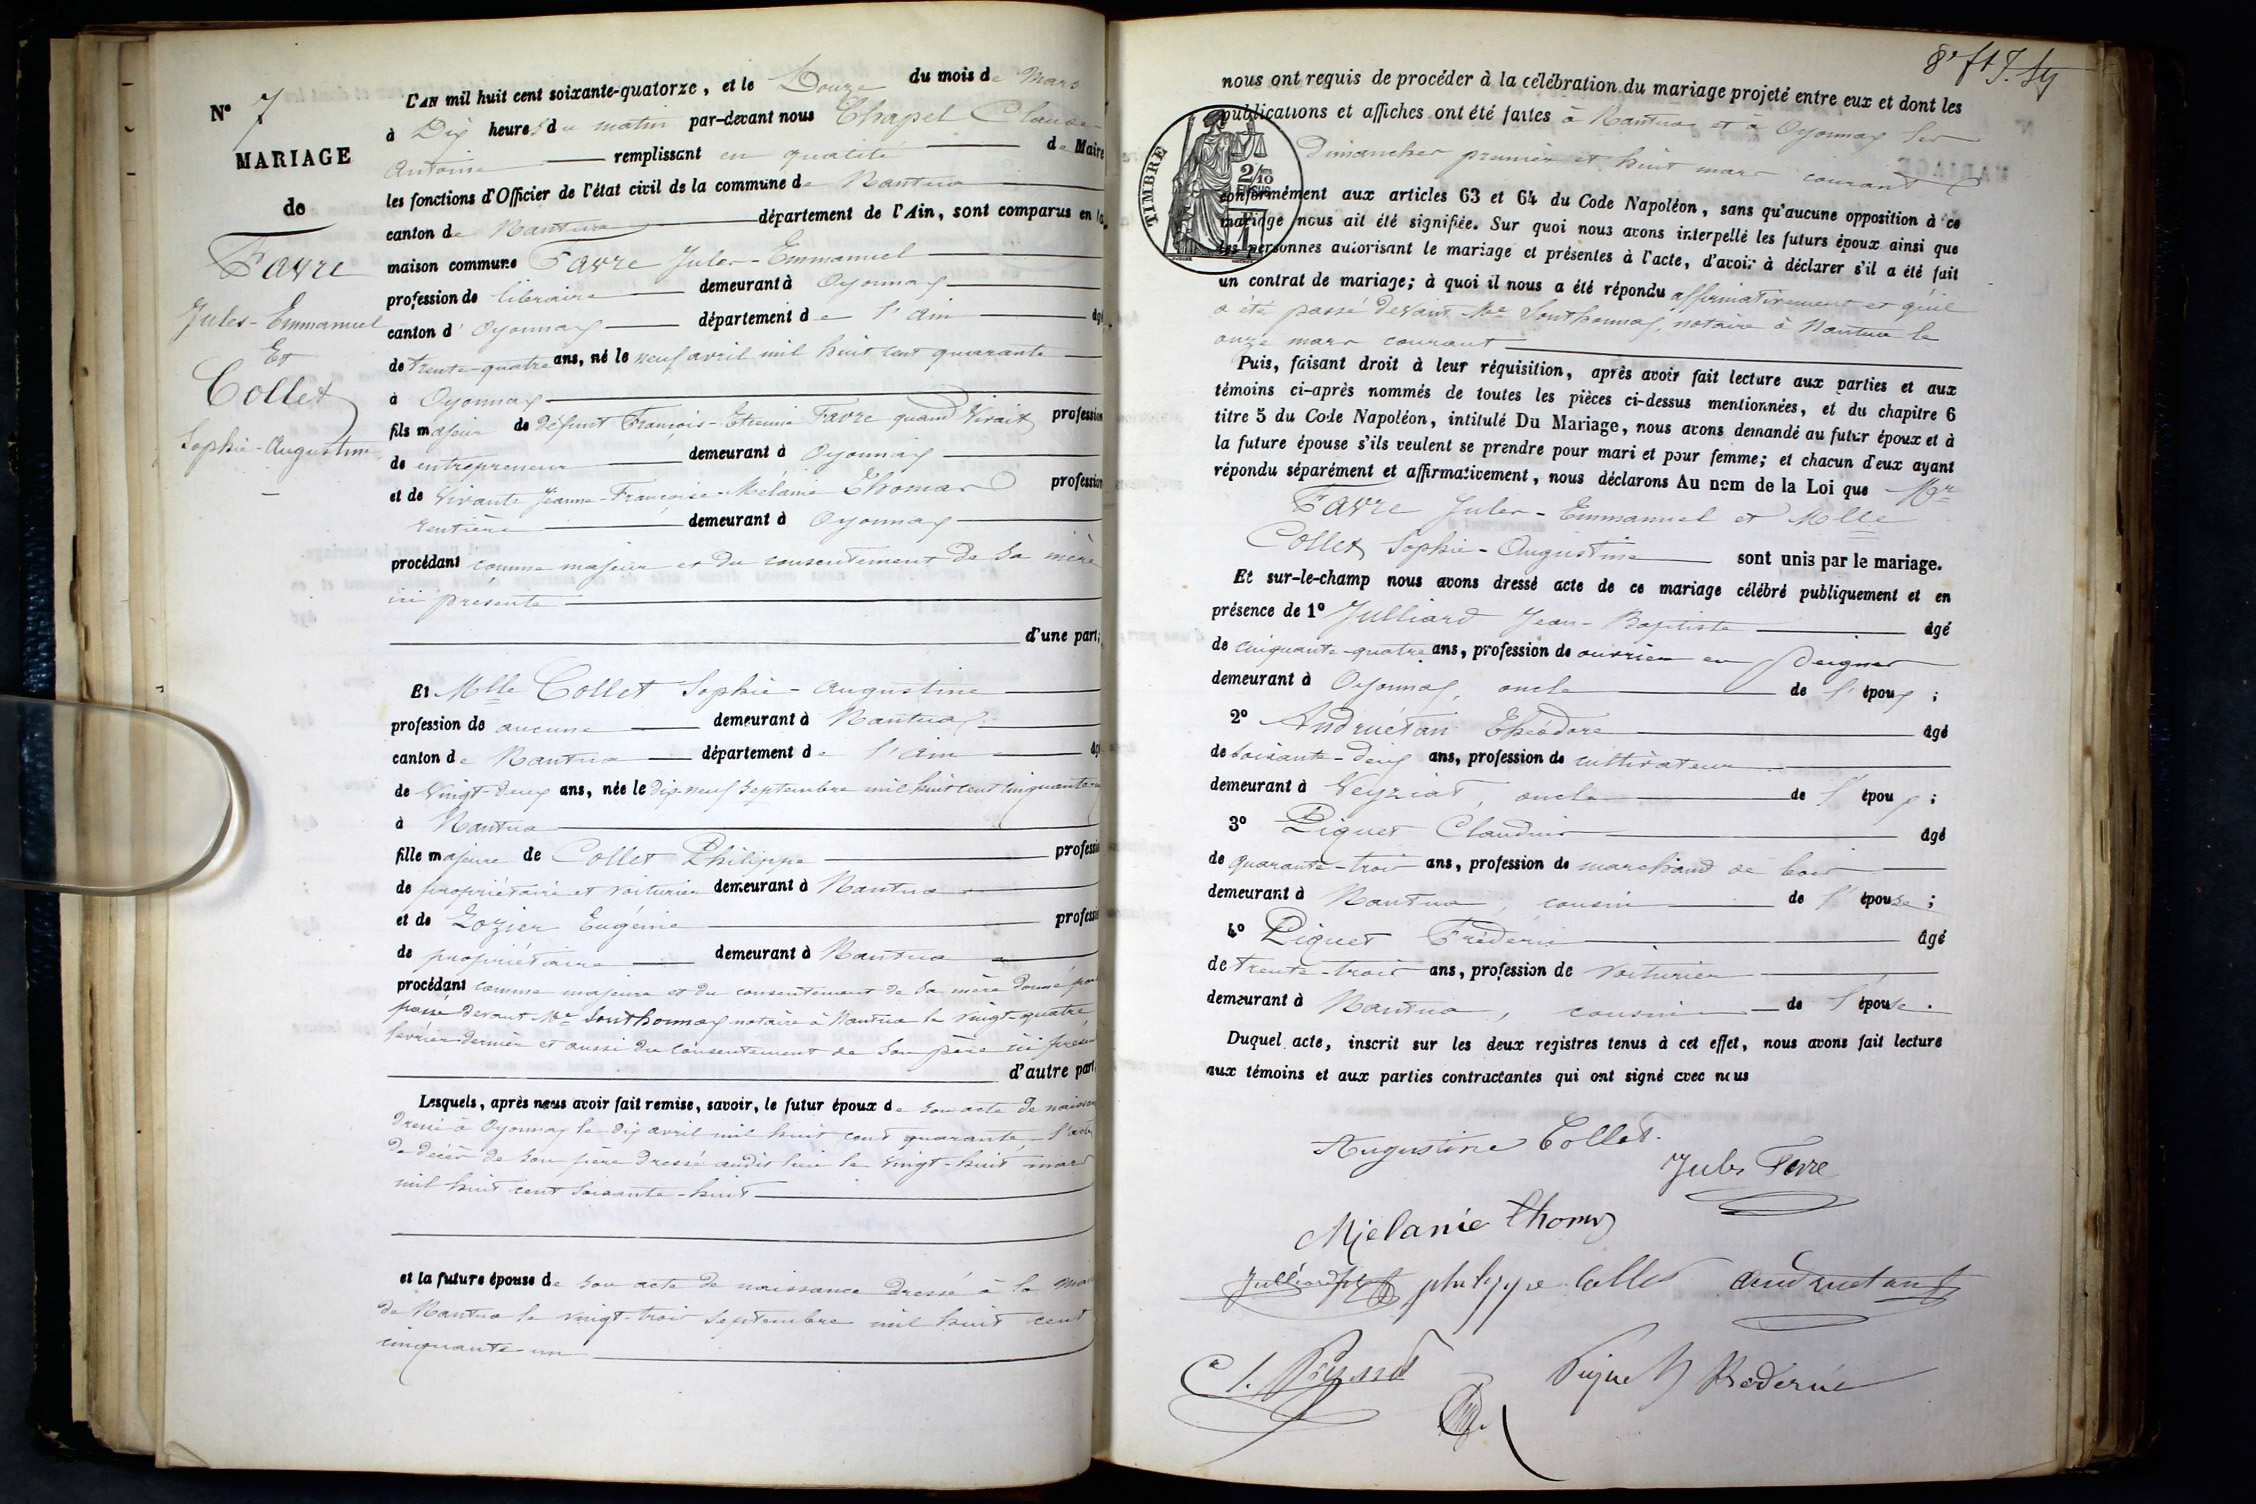 N° 7
MARIAGE
de
Favre
Jules-Emmanuel
Et
Collet
Sophie-Augustine
L'AN mil huit cent soixante-quatorze, et le Douze du mois de Mars
à Dix heures du matin par-devant nous Chapel Claude-
Antoine remplissant en qualité de Maire
les fonctions d'Officier de l'état civil de la commune de Nantua
canton de Nantua département de l'Ain, sont comparus en la
maison commune Favre Jules-Emmanuel
profession de libraire demeurant à Oyonnax
canton d'Oyonnax département de l'Ain âgé
de trente-quatre ans, né le neuf avril mil huit cent quarante
à Oyonnax
fils majeur de défunt François-Etienne Favre quand vivait profession
de entrepreneur demeurant à Oyonnax
et de vivante Jeanne-Françoise-Mélanie Thomas profession
rentière demeurant à Oyonnax
procédant comme majeur et du consentement de sa mère
ici présente
d'une part;
Et Mlle Collet Sophie-Augustine
profession de aucune demeurant à Nantua
canton de Nantua département de l'Ain âgé
de vingt-deux ans, née le dix-neuf septembre mil huit cent cinquante-un
à Nantua
fille majeure de Collet Philippe profession
de propriétaire et voiturier demeurant à Nantua
et de Gozier Eugénie profession
de propriétaire demeurant à Nantua
procédant comme majeure et du consentement de sa mère donné par
passé devant Me Southonnax notaire à Nantua le vingt-quatre
février dernier et aussi du consentement de son père ici présent
d'autre part.
Lesquels, après nous avoir fait remise, savoir, le futur époux de son acte de naissance
dressé à Oyonnax le dix avril mil huit cent quarante, l'acte
de décès de son père dressé audit lieu le vingt-huit mars
mil huit cent soixante-huit
et la future épouse de son acte de naissance dressé à la Mairie
de Nantua le vingt-trois septembre mil huit cent
cinquante-un
nous ont requis de procéder à la célébration du mariage projeté entre eux et dont les
publications et affiches ont été faites à Nantua et à Oyonnax les
Dimanches premier et huit mars courant
conformément aux articles 63 et 64 du Code Napoléon, sans qu'aucune opposition à ce
mariage nous ait été signifiée. Sur quoi nous avons interpellé les futurs époux ainsi que
les personnes autorisant le mariage et présentes à l'acte, d'avoir à déclarer s'il a été fait
un contrat de mariage; à quoi il nous a été répondu affirmativement et qu'il
a été passé devant Me Southonnax, notaire à Nantua le
onze mars courant
TIMBRE
2/10
EN SUS
Puis, faisant droit à leur réquisition, après avoir fait lecture aux parties et aux
témoins ci-après nommés de toutes les pièces ci-dessus mentionnées, et du chapitre 6
titre 5 du Code Napoléon, intitulé Du Mariage, nous avons demandé au futur époux et à
la future épouse s'ils veulent se prendre pour mari et pour femme; et chacun d'eux ayant
répondu séparément et affirmativement, nous déclarons Au nom de la Loi que Mr
Favre Jules-Emmanuel et Mlle
Collet Sophie-Augustine sont unis par le mariage.
Et sur-le-champ nous avons dressé acte de ce mariage célébré publiquement et en
présence de 1° Julliard Jean-Baptiste âgé
de cinquante-quatre ans, profession de ouvrier en peignes
demeurant à Oyonnax, oncle de l'époux;
2° Andruétan Théodore âgé
de soixante-deux ans, profession de cultivateur
demeurant à Veyziat, oncle de l'époux;
3° Piquet Claudius âgé
de quarante-trois ans, profession de marchand de bois
demeurant à Nantua, cousin de l'épouse;
4° Piquet Frédéric âgé
de trente-trois ans, profession de voiturier
demeurant à Nantua, cousin de l'épouse.
Duquel acte, inscrit sur les deux registres tenus à cet effet, nous avons fait lecture
aux témoins et aux parties contractantes qui ont signé avec nous
Augustine Collet.
Jules Favre
Mélanie Thomas
philippe Collet
andruetan
Piquet Frédéric